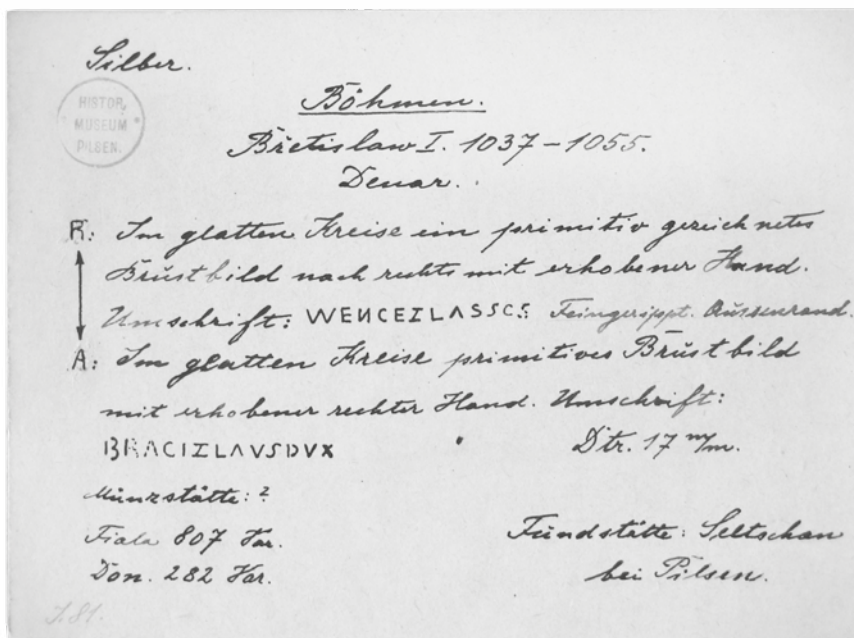 Silber.
HISTOR.
MUSEUM
PILSEN.
Böhmen.
Břetislaw I. 1037-1055.
Denar.
R: Im glatten Kreise ein primitiv gezeichnetes
Brustbild nach rechts mit erhobener Hand.
Umschrift: WENCEZLASSCS Feingerippt. Aussenrand.
A: Im glatten Kreise primitives Brustbild
mit erhobener rechter Hand. Umschrift:
BRACIZLAVSDVX Dtr. 17 m/m.
Münzstätte: ?
Fiala 807 Var.
Don. 282 Var.
Fundstätte: Seltschan
bei Pilsen.